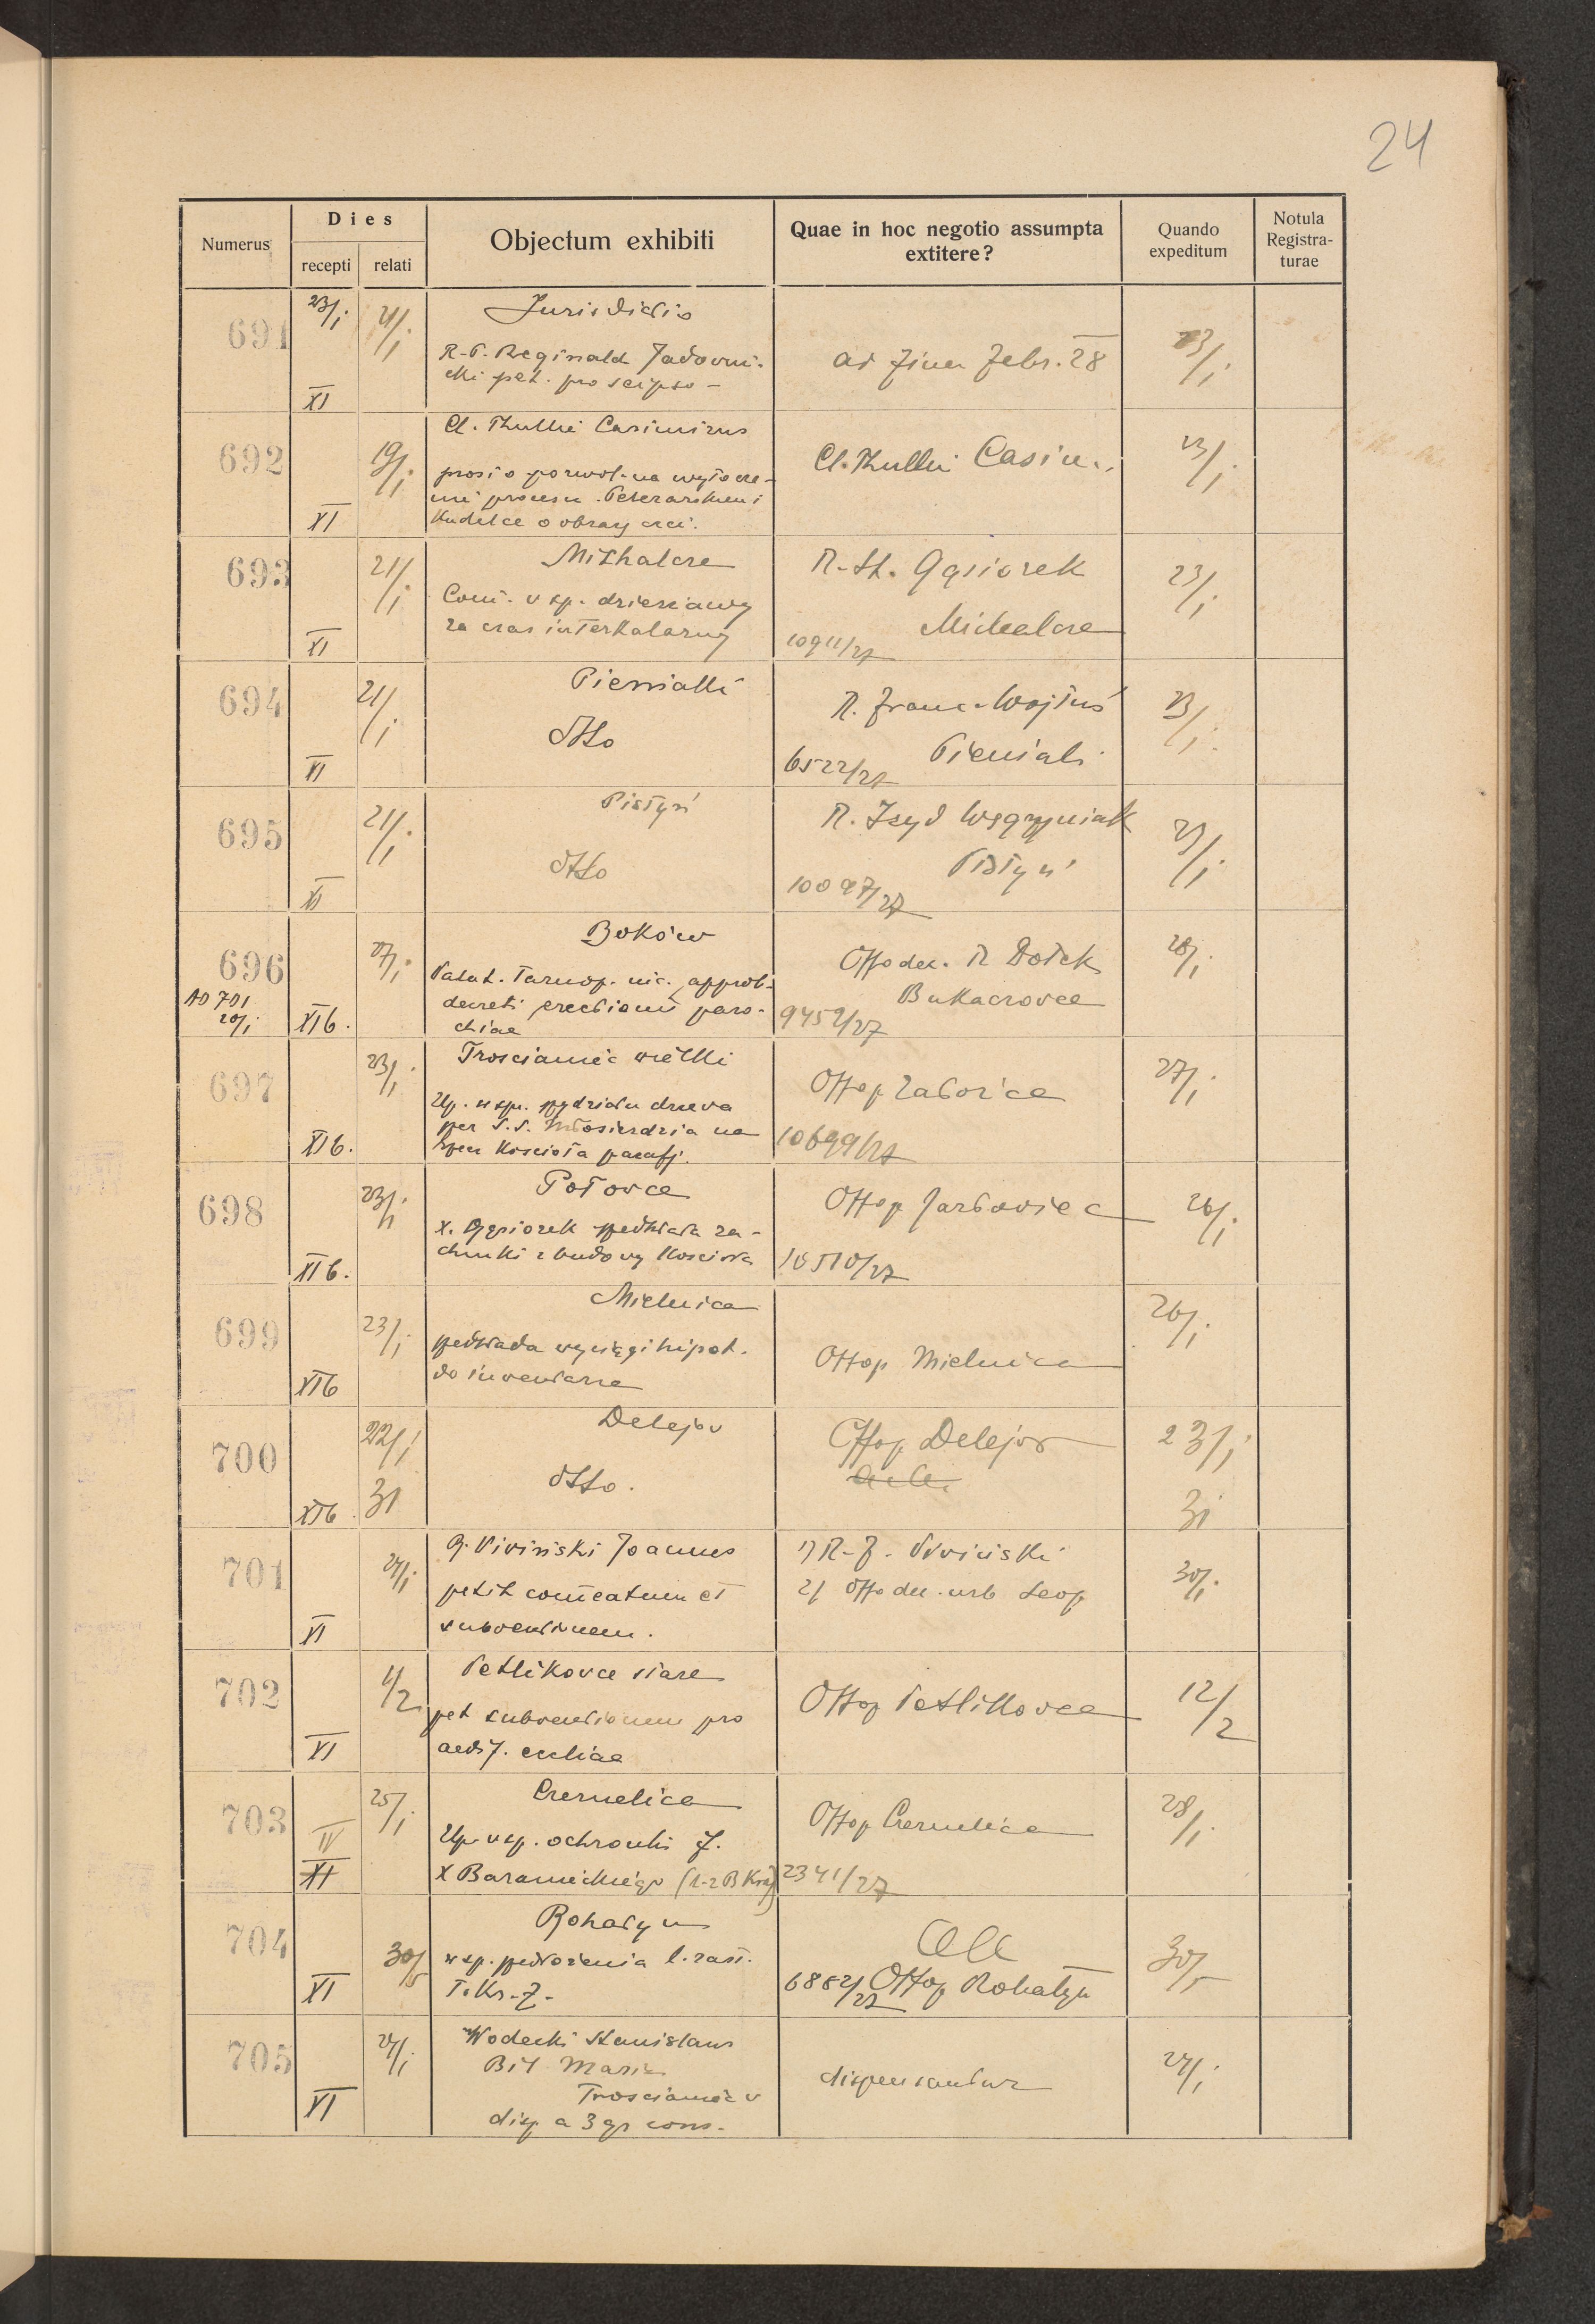 24
Numerus
Dies
recepti relati
Objectum exhibiti
Quae in hoc negotio assumpta
extitere?
Quando
expeditum
Notula
Registra-
turae
691
23/I
XI
21/I
Jurisdictio
R. P. Reginald Jadowni-
cki pet. pro seipso -
ad finem Febr. 28
23/I
692
XI
19/I
Cl. Thullie Casimirus
prosi o pozwol. na wytocze-
nie procesu
Kudelce o obrazę czci.
Cl. Thullie Casim.
23/I
693
XI
21/I
Michalcze
Com. w sp. dzierżawy
za czas interkalarny
R. St. Gąsiorek
Michalcze
10911/27
23/I
694
XI
21/I
Pieniaki
dtto
R. Franc. Wojtuś
Pieniaki
6522/27
23/I
695
XI
21/I
Pistyń
dtto
R. Izyd Węgrzyniak
Pistyń
10097/27
23/I
696
ad 701
20/I
XIb.
27/I
Boków
Palat. Tarnop. nic. approb.
decreti erectionis paro-
chiae
Offo dec. R Dołek
Bukaczowce
9459/27
28/I
697
XIb.
23/I
Trościaniec wielki
Up. w sp. drzewa
per S.S. Miłosierdzia na
Kościoła parafj.
Offop Załoźce
10699/27
27/I
698
XIb.
23/I
Połowce
X. Gąsiorek przedkłada ra-
chunki z budowy Kościoła
Offop Jazłowiec
10510/27
26/I
699
XIb
23/I
Mielnica
przedkłada wyciągi hipot.
do inwentarza
Offop Mielnica
26/I
700
XIb.
22/I
31
Delejów
dtto.
Offop Delejów
23/I
31
701
XI
27/I
Piwiński Joannes
petit comeatum et
subventionem.
1) R. J. Piwiński
2) Offo dec. urb Leop
30/I
702
XI
11/2
Petlikowce stare
pet subventionem pro
aedif. eccliae
Offop Petlikowce
12/2
703
IV
XI
25/I
Czernelica
Up. w sp. ochronki f.
X Baranieckiego
Offop Czernelica
2341/27
28/I
704
XI
30/5
Rohatyn
w sp. przedłożenia l. zast.
T. Kr. Z.
Offop Rohatyn
6882/27
30/5
705
XI
27/I
Wodecki Stanislaus
Bił Maria
Trościaniec w
disp a 3 gr cons.
dispensantur
27/I